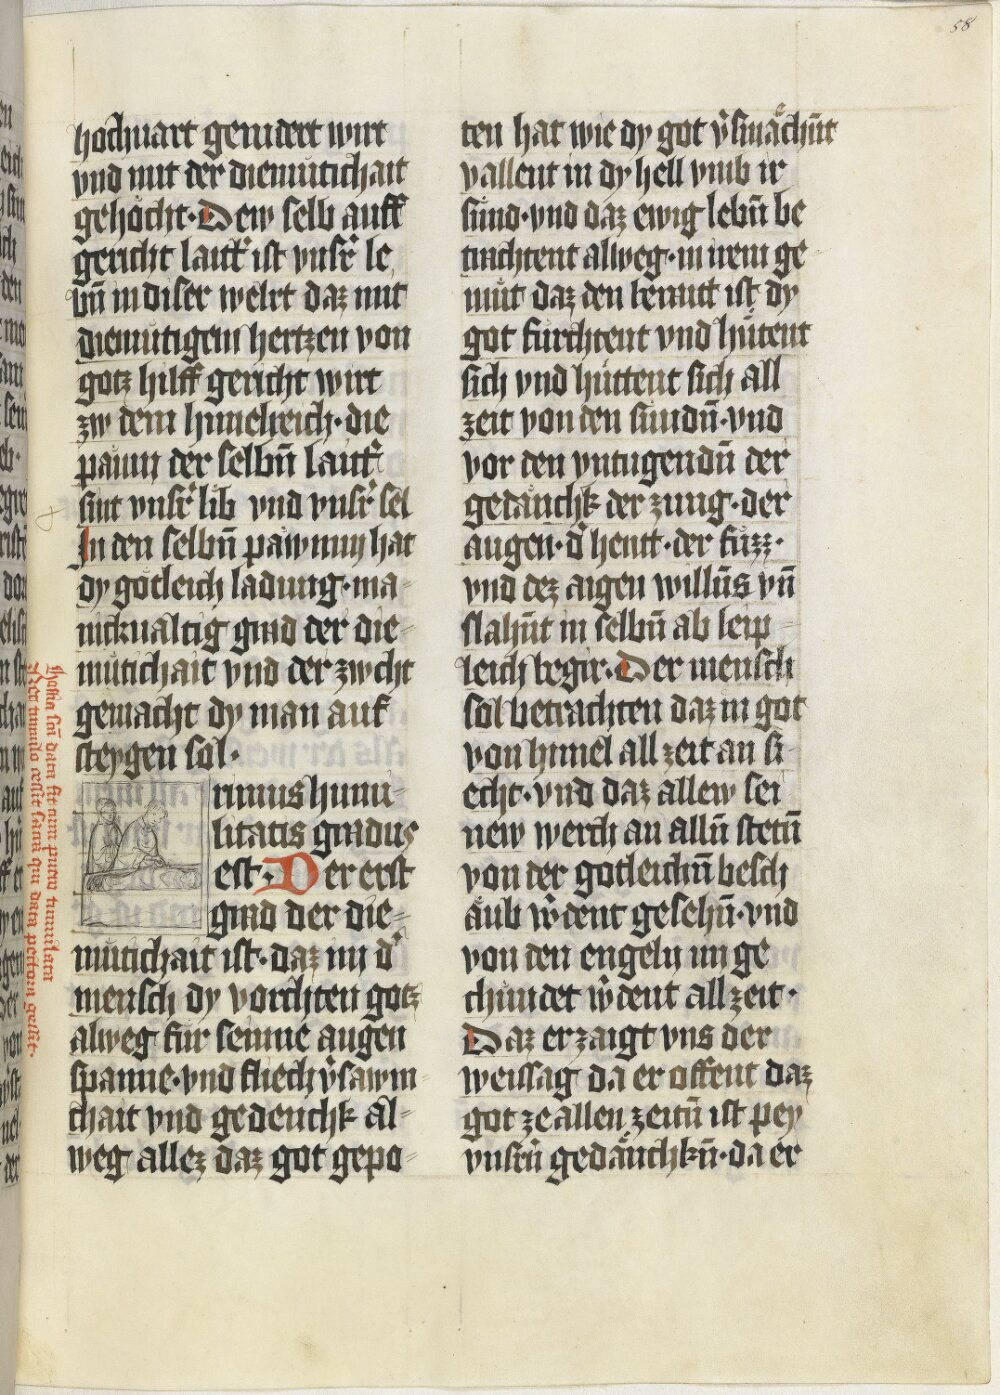 58
hochuart genidert wirt
vnd mit der diemütichait
gehöcht. Dew selb auff
gericht laitt̉ ist vnsr̉ le
bn̄ in diser welrt daz mit
diemütigem hertzen von
gotz hilff gericht wirt
zw dem himelreich. die
päum der selbn̄ laitt̉
sint vnsr̉ lib vnd vnsr̉ sel
In den selbn̄ päwmmen hat
dy götleich ladung. ma-
nickualtig grad der die-
mütichait vnd der zwcht
gemacht dy man auf
steygen sol.
rimus humi-
litatis gradus
est. Der erst
grad der die-
mütichait ist. daz im d̉
mensch dy vorchten gotz
alweg für seinne augen
spanne. vnd fliech v̉sawm-
chait vnd gedenchk al-
weg allez daz got gepo-
ten hat wie dy got v̉smächn̄t
vallent in dy hell vmb ir
sünd. vnd daz ewig lebn̄ be
trachtent alweg. in irem ge-
müt daz den berait ist dy
got fürchtent vnd hütent
sich vnd hüttent sich all
zeit von den sündn̄. vnd
vor den vntugendn̄ der
gedänchk der zung. der
augen. d̉ hentt. der füzz.
vnd dez aigen willn̄s vn̄
slahn̄t in selbn̄ ab leip-
leich begir. Der mensch
sol betrachten daz in got
von himel all zeit an si-
echt. vnd daz allew sei
new werch an alln̄ stetn̄
von der gotleichn̄ besch
äub w̉dent gesehn̄. vnd
von den engeln im ge
chundet w̉dent all zeit.
Daz erzaigt vns der
weissag da er offent daz
got ze allen zeitn̄ ist pey
vnsrn̄ gedänchkn̄. da er